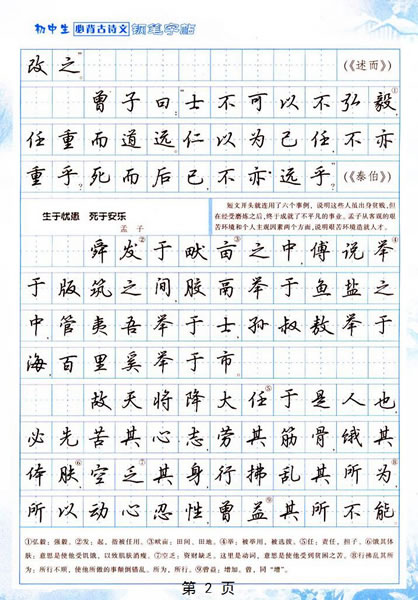 初中生 必背古诗文 钢笔字帖
改之 (《述而》)
曾子曰:士不可以不弘毅①
任重而道远。仁以为己任,不亦
重乎?死而后已,不亦远乎?(《泰伯》)
生于忧患 死于安乐
孟子
短文开头就连用了六个事例,说明这些人虽出身贫贱,但
在经受磨炼之后,终于成就了不平凡的事业。孟子从客观的艰
苦环境和个人主观因素两个方面,说明艰苦环境造就人才。
舜发②于畎亩③之中,傅说举④
于版筑之间,胶鬲举于鱼盐之
中,管夷吾举于士,孙叔敖举于
海,百里奚举于市。
故天将降大任⑤于是人也,
必先苦其心志,劳其筋骨,饿其
体肤⑥,空乏⑦其身,行拂乱其所为⑧
所以动心忍性,曾益⑨其所不能
①弘毅:强毅。②发:起,指被任用。③畎亩:田间、田地。④举:被举用,被选拔。⑤任:责任,担子。⑥饿其体
肤:意思是使他受饥饿,以致肌肤消瘦。⑦空乏:资财缺乏。这里是动词,意思是使他受到贫困之苦。⑧行拂乱其所
为:所行不顺,使他所做的事颠倒错乱。所为,所行。⑨曾益:增加。曾,同“增”。
第 2 页